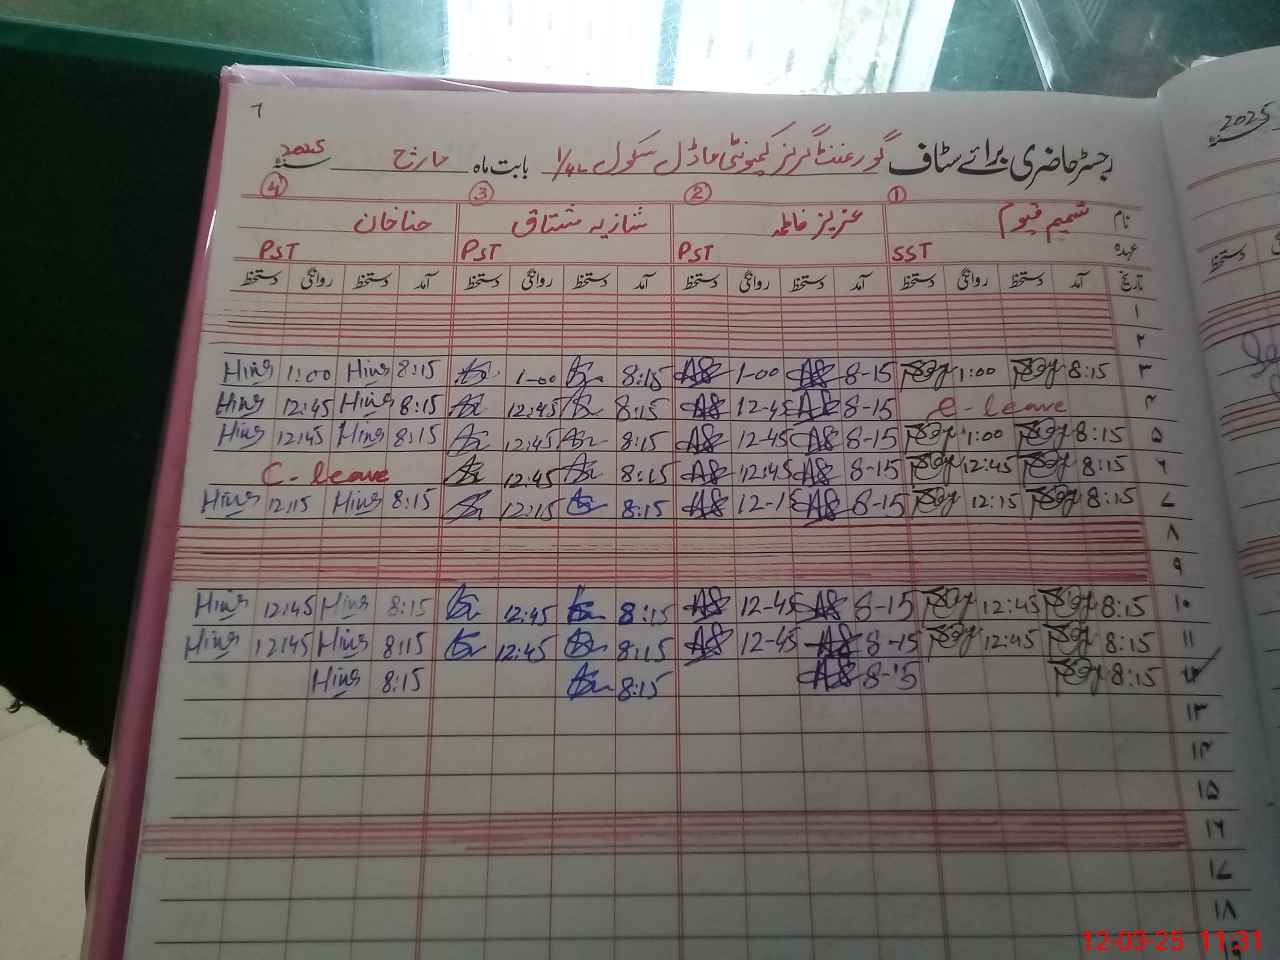 ٦
رجسٹر حاضری برائے سٹاف گورنمنٹ گرلز کمیونٹی ماڈل سکول بابت ماہ مارچ سنہ 2025
① ② ③ ④
نام شمیم قیوم عزیز فاطمہ شازیہ مشتاق حنا خان
عہدہ SST PST PST PST
تاریخ آمد دستخط روانگی دستخط آمد دستخط روانگی دستخط آمد دستخط روانگی دستخط آمد دستخط روانگی دستخط
۱
۲
۳ 8:15 1:00 8-15 1-00 8:15 1-00 8:15 Hina 1:00 Hina
۴ C-leave 8-15 12-45 8:15 12:45 8:15 Hina 12:45 Hina
۵ 8:15 1:00 8-15 12-45 8:15 12:45 8:15 Hina 12:45 Hina
۶ 8:15 12:45 8-15 12:45 8:15 12:45 C-leave
۷ 8:15 12:15 8-15 12-15 8:15 12:15 8:15 Hina 12:15 Hina
۸
۹
۱۰ 8:15 12:45 8-15 12-45 8:15 12:45 8:15 Hina 12:45 Hina
۱۱ 8:15 12:45 8-15 12-45 8:15 12:45 8:15 Hina 12:45 Hina
۱۲ 8:15 8-15 8:15 8:15 Hina
۱۳
۱۴
۱۵
۱۶
۱۷
۱۸
۱۹
2025
دستخط
12-03-25 11:31